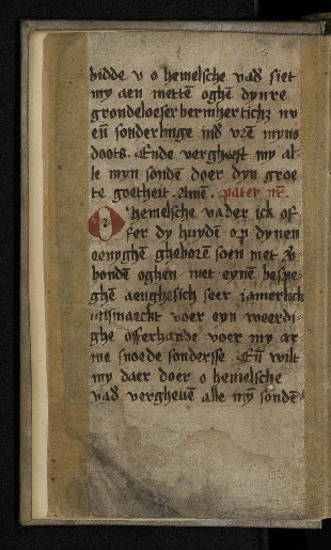 bidde v o hemelsche vad̄ siet
my aen metten oghen dynre
grondeloeser bermhertich; nv
en̄ sonderlinge in d̄ vrē myns
doots. Ende vergheeft my al
le myn sondē doer dyn groe
te goetheit. Amē. pater nr̄.
O hemelsche vader ick of
fer dy huydē op dynen
eenyghen gheborē soen met
bondē oghen met eynē bespe
ghē aenghesich seer iamerlick
mismaeckt voer eyn weerdi
ghe offerhande voer my ar
me snoede sondersse. En̄ wilt
my daer doer o hemelsche
vad̄ vergheuē alle my̅ sondē